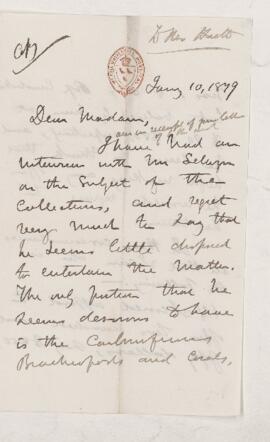 To Mrs
Jany 10, 1879
Dear Madam,
am in receipt of your letter
I have had an
interview with Mr Selwyn
on the subject of the
Collections, and regret
very much to say that
he seems little disposed
to entertain the matter.
The only portion that he
seems desirous to have
is the Carboniferous
Brachiopods and Corals,